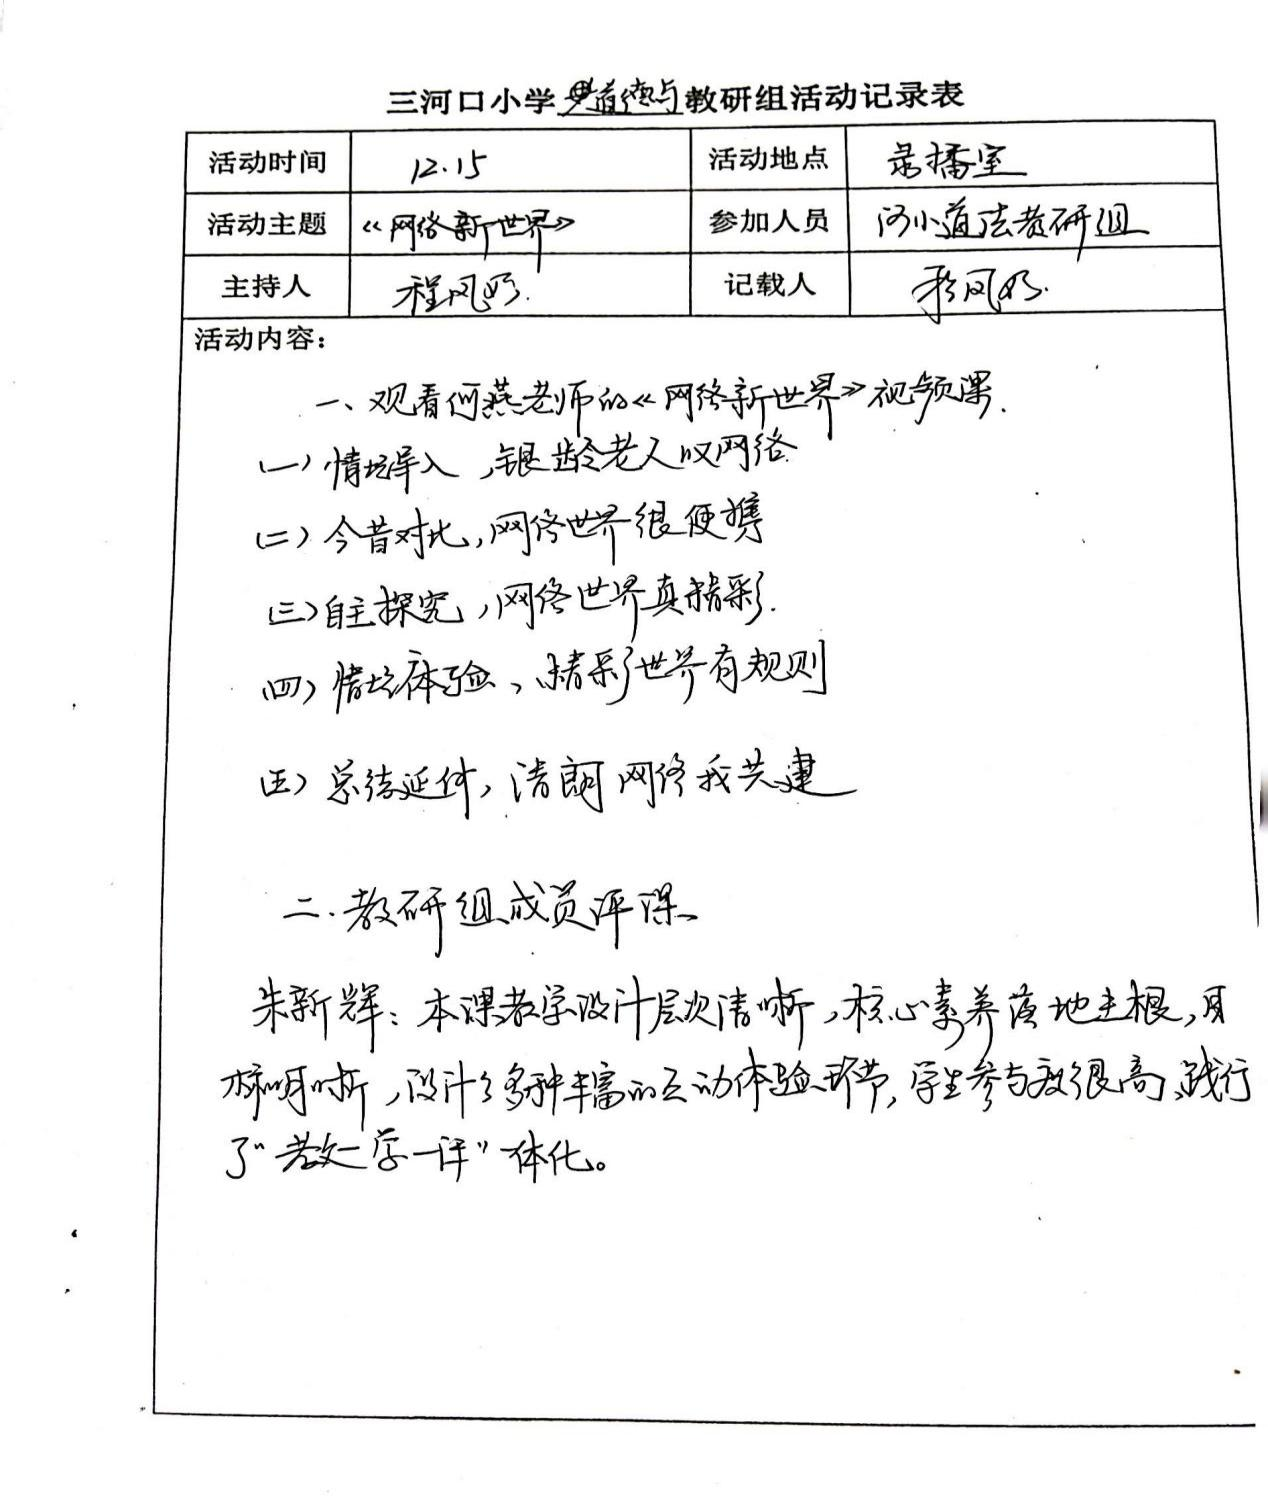 三河口小学道德与教研组活动记录表
活动时间 12.15 活动地点 录播室
活动主题 《网络新世界》 参加人员 河小道法教研组
主持人 程凤 记载人 程凤
活动内容：
一、观看何燕老师的《网络新世界》视频课.
(一)情境导入，银龄老人叹网络
(二)今昔对比，网络世界很便携
(三)自主探究，网络世界真精彩.
(四)情境体验、精彩世界有规则
(五)总结延伸，清朗网络我共建
二.教研组成员评课、
朱新辉：本课教学设计层次清晰，核心素养落地生根，目
标明晰，设计了多种丰富的互动体验环节，学生参与度很高、践行
了“教—学—评”一体化。